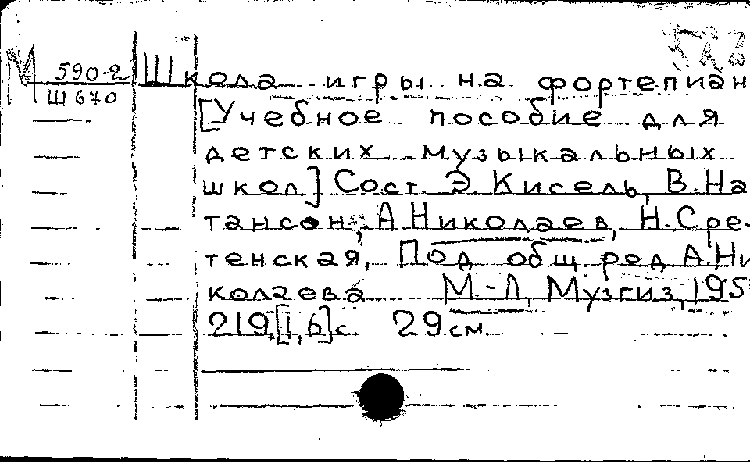 М 590-2 Школа игры на фортепиан
Ш 670
[Учебное пособие для
детских музыкальных
школ] Сост. Э. Кисель, В. На
тансон, А. Николаев, Н. Сре-
тенская, Под общ. ред А. Ни
колаева М.-Л, Музгиз, 195
219, [1, 6] с 29 см.